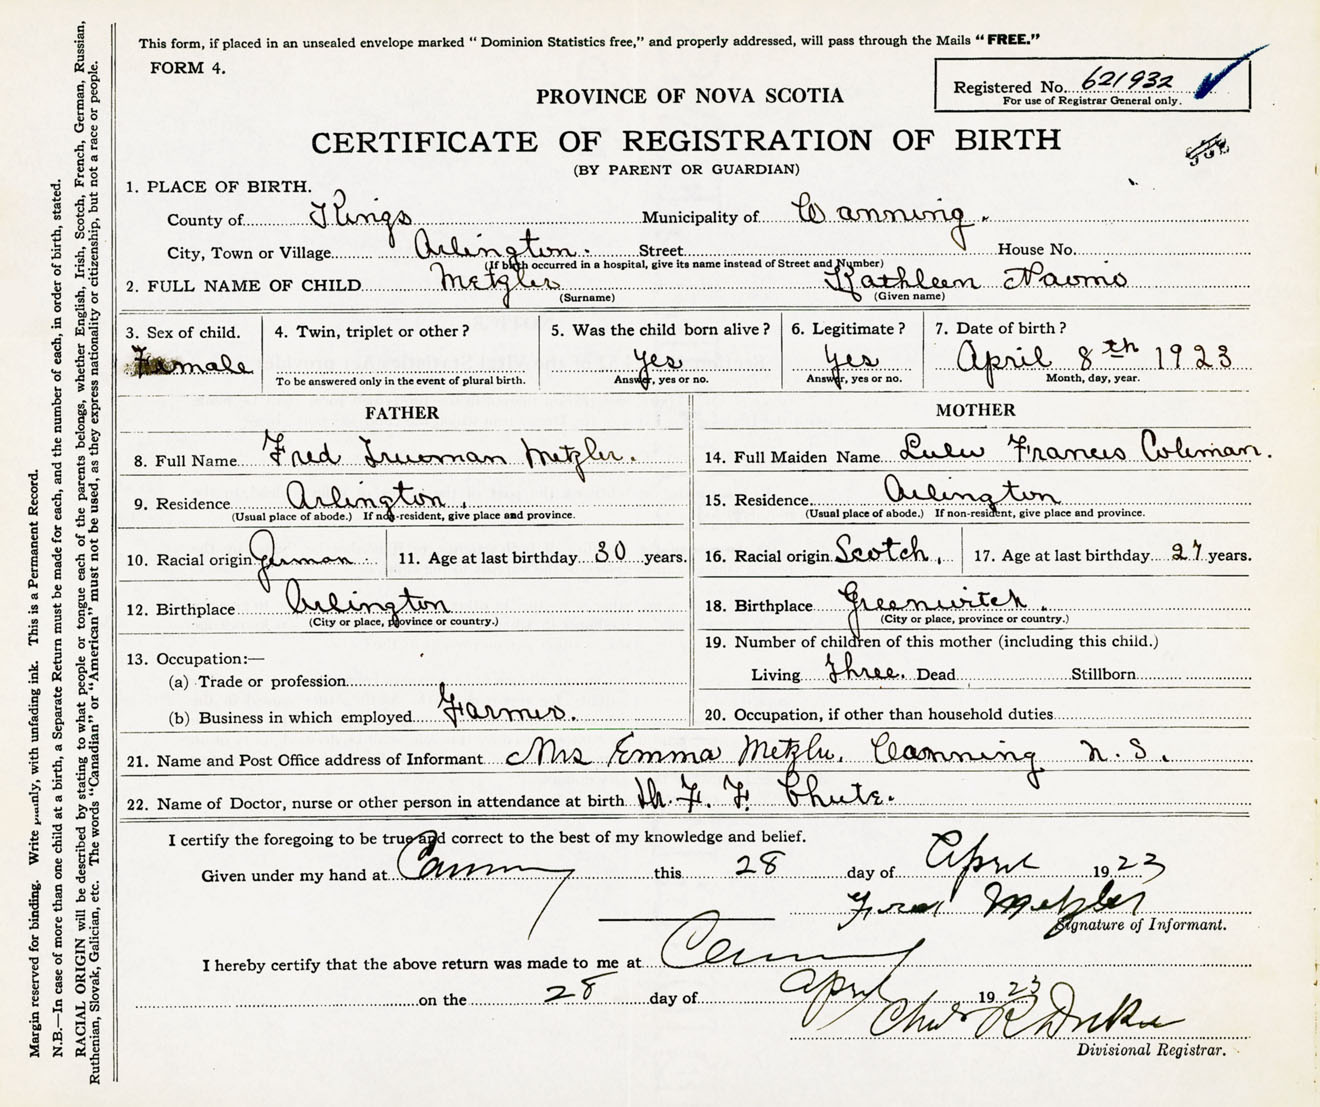 This form, if placed in an unsealed envelope marked " Dominion Statistics free," and properly addressed, will pass through the Mails "FREE."
FORM 4.
Registered No. 621932
For use of Registrar General only.
PROVINCE OF NOVA SCOTIA
CERTIFICATE OF REGISTRATION OF BIRTH
(BY PARENT OR GUARDIAN)
1. PLACE OF BIRTH.
County of Kings Municipality of Canning.
City, Town or Village Arlington. Street House No.
(If birth occurred in a hospital, give its name instead of Street and Number)
2. FULL NAME OF CHILD Metzler Kathleen Naomi
(Surname) (Given name)
3. Sex of child. 4. Twin, triplet or other? 5. Was the child born alive? 6. Legitimate? 7. Date of birth?
Female yes yes April 8th 1923
To be answered only in the event of plural birth. Answer, yes or no. Answer, yes or no. Month, day, year.
FATHER MOTHER
8. Full Name Fred Trueman Metzler. 14. Full Maiden Name Lulu Francis Coleman.
9. Residence Arlington. 15. Residence Arlington
(Usual place of abode.) If non-resident, give place and province. (Usual place of abode.) If non-resident, give place and province.
10. Racial origin German 11. Age at last birthday 30 years. 16. Racial origin Scotch, 17. Age at last birthday 27 years.
12. Birthplace Arlington 18. Birthplace Greenwitch.
(City or place, province or country.) (City or place, province or country.)
13. Occupation:— 19. Number of children of this mother (including this child.)
(a) Trade or profession Living Three. Dead Stillborn
(b) Business in which employed Farmer. 20. Occupation, if other than household duties
21. Name and Post Office address of Informant Mrs Emma Metzler, Canning N. S.
22. Name of Doctor, nurse or other person in attendance at birth Dr. F. F. Chute.
I certify the foregoing to be true and correct to the best of my knowledge and belief.
Given under my hand at Canning this 28 day of April 1923
Fred Metzler
Signature of Informant.
I hereby certify that the above return was made to me at Canning
on the 28 day of April 1923
Chas R
Divisional Registrar.
Margin reserved for binding. Write plainly, with unfading ink. This is a Permanent Record.
N.B.—In case of more than one child at a birth, a Separate Return must be made for each, and the number of each, in order of birth, stated.
RACIAL ORIGIN will be described by stating to what people or tongue each of the parents belongs, whether English, Irish, Scotch, French, German, Russian,
Ruthenian, Slovak, Galician, etc. The words "Canadian" or "American" must not be used, as they express nationality or citizenship, but not a race or people.